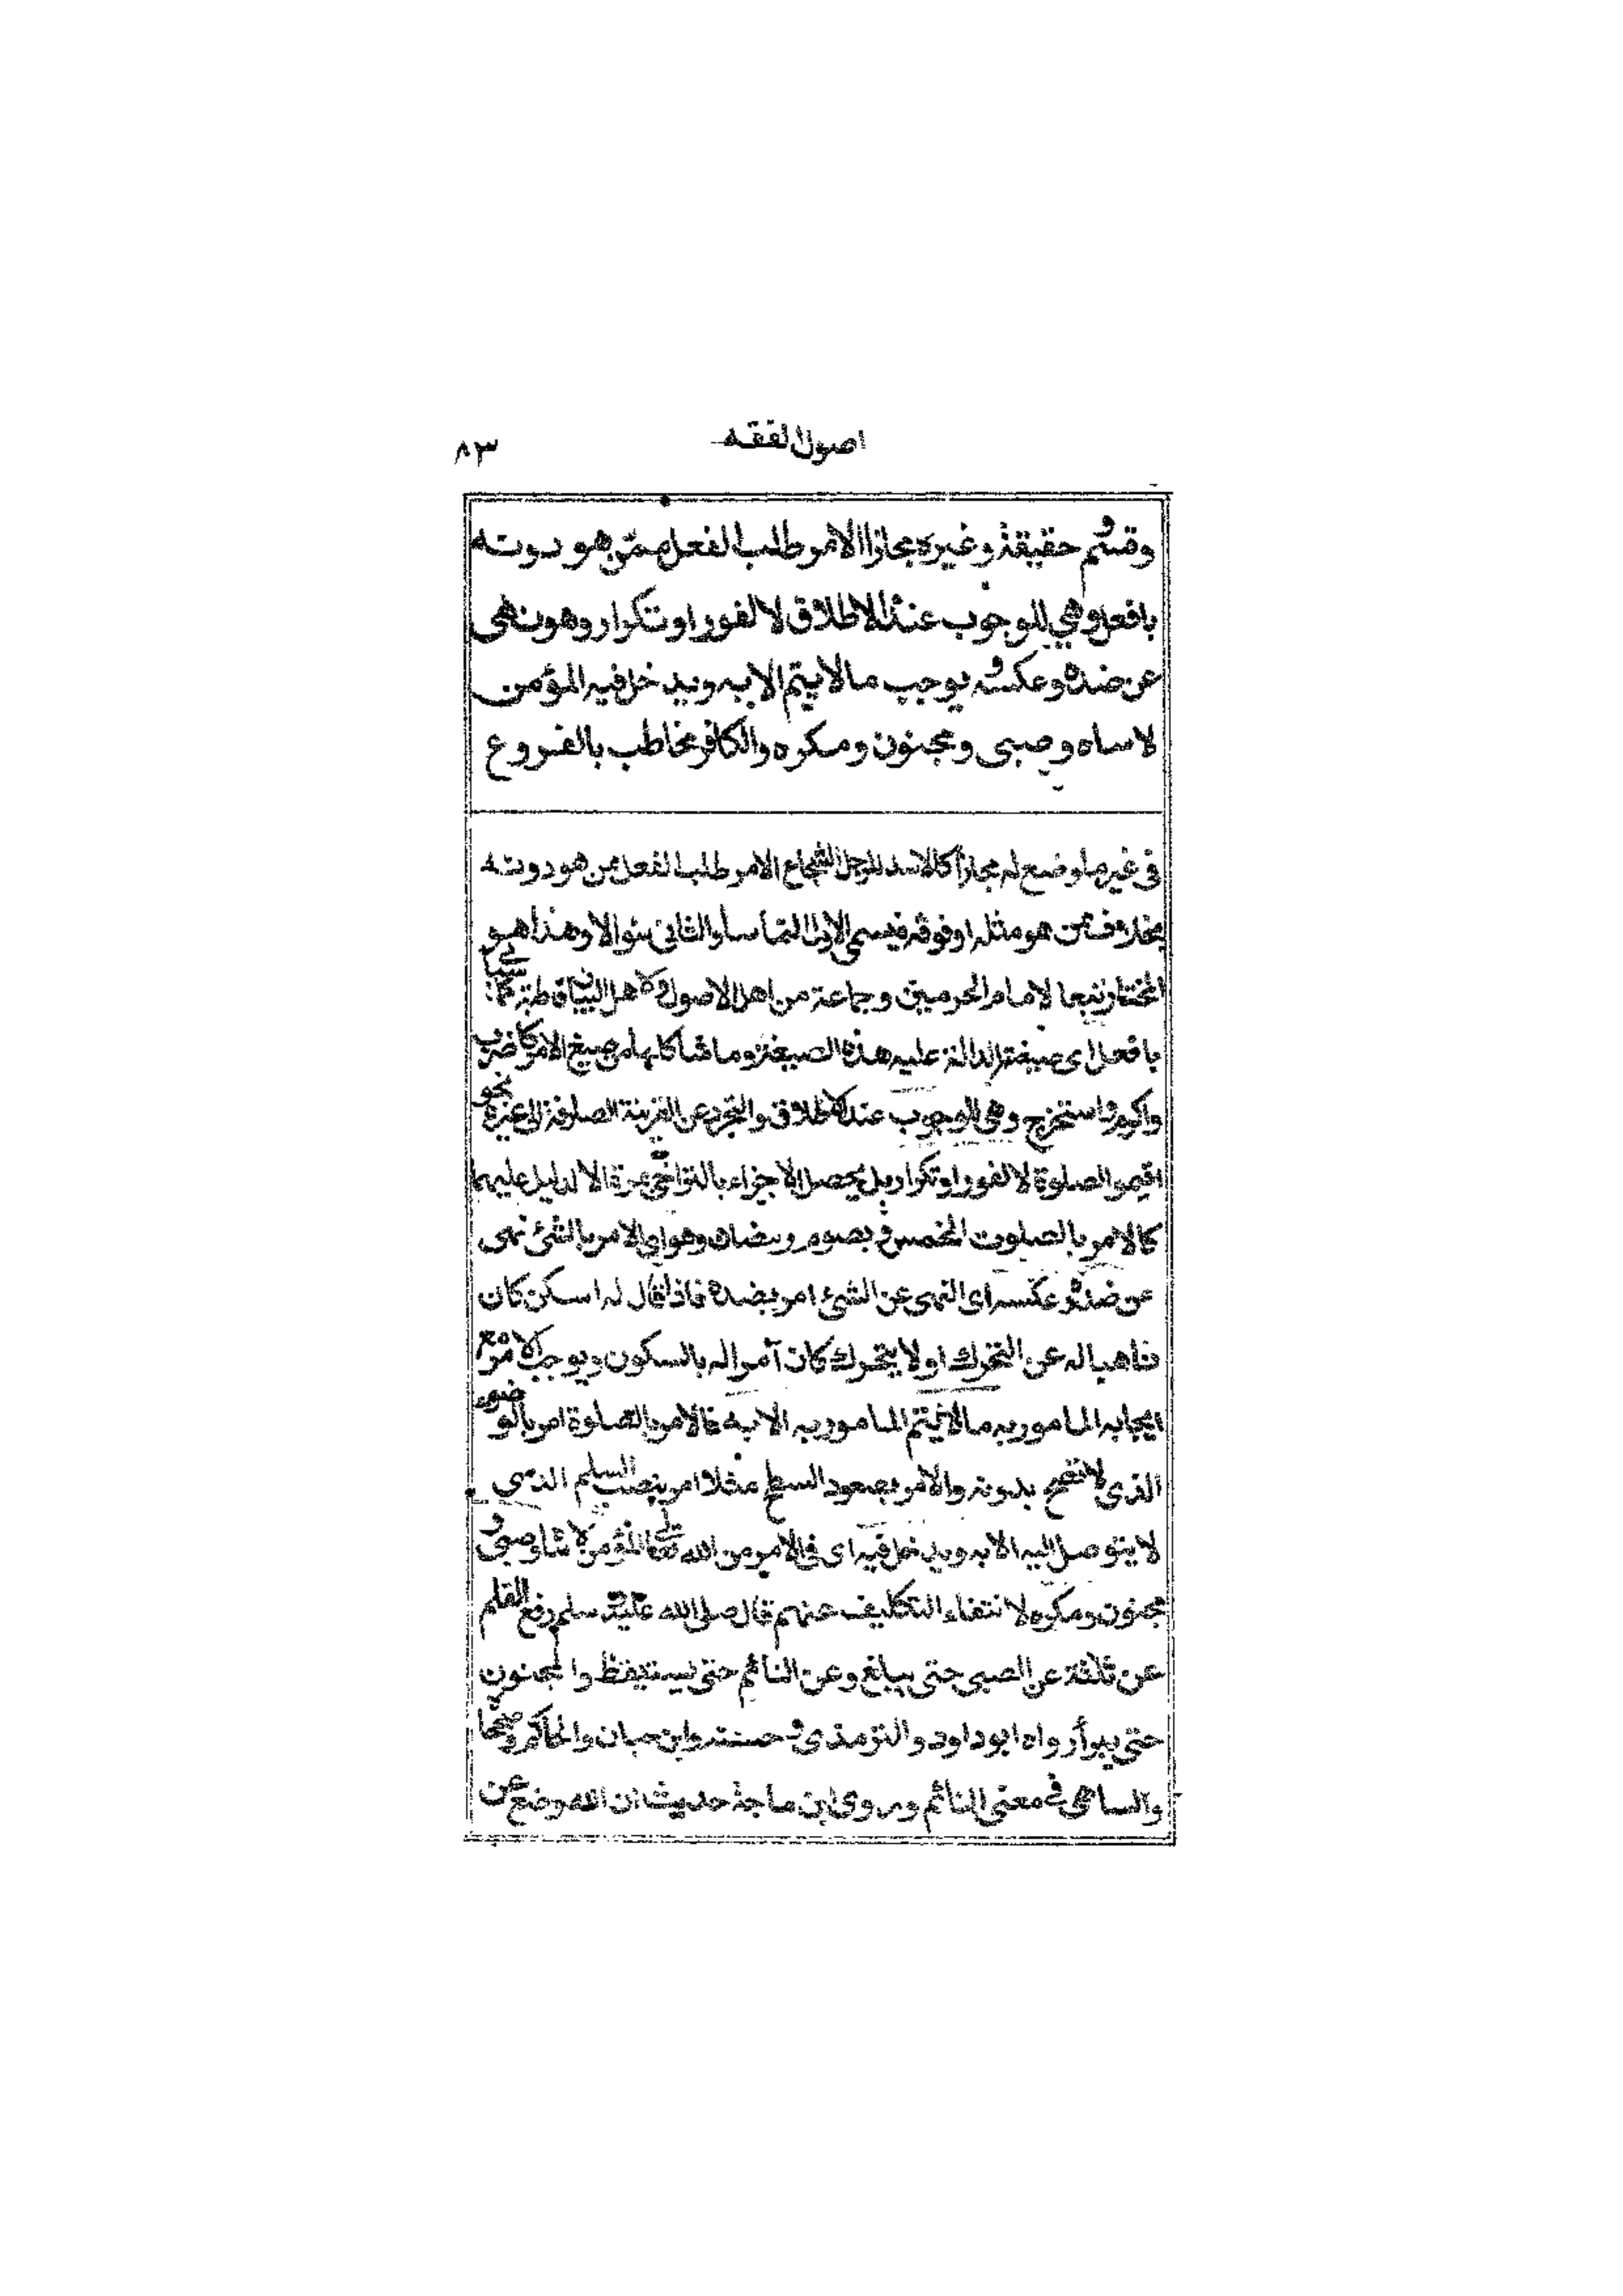 اصول الفقه
٨٣
وقسم حقيقة وغيره مجاز الامر طلب الفعل ممن هو دونه
بافعل وهي للوجوب عند الاطلاق لا لفور او تكرار وهو نهى
عن ضده وعكسه يوجب ما لا يتم الا به ويدخل فيه المؤمن
لا ساه وصبى ومجنون ومكره والكافر مخاطب بالفروع
فى غير ما وضع له مجازا كالاسد للرجل الشجاع الامر طلب الفعل ممن هو دونه
بخلاف ممن هو مثله او فوقه فيسمى الاول التماسا والثانى سوالا وهذا هو
المختار تبعا لامام الحرمين وجماعة من اهل الاصول واهل البيان قاطبة كما سياتى
بافعل اى صيغته الدالة عليه هذه الصيغة وما شاكلها من صيغ الامر كاضرب
واكرم واستخرج وهى للوجوب عند الاطلاق والتجرد عن القرينة الصارفة الى غيره نحو
اقيموا الصلوة لا لفور او تكرار بل يحصل الاجزاء بالتراخى ومرة الا لدليل عليهما
كالامر بالصلوت الخمس وبصوم رمضان وهو اى الامر بالشئ نهى
عن ضده وعكسه اى النهى عن الشئ امر بضده فاذا قال له اسكن كان
ناهيا له عن التحرك او لا يتحرك كان آمرا له بالسكون ويوجب الامر مع
ايجابه المامور به ما لا يتم المامور به الا به فالامر بالصلوة امر بالوضوء
الذى لا تصح بدونه والامر بصعود السطح مثلا امر بنصب السلم الذى
لا يتوصل اليه الا به ويدخل فيه اى فى الامر من الله تعالى المؤمن لا ساه وصبى و
مجنون ومكره لانتفاء التكليف عنهم قال صلى الله عليه وسلم رفع القلم
عن ثلثة عن الصبى حتى يبلغ وعن النائم حتى يستيقظ والمجنون
حتى يبرأ رواه ابو داود والترمذى وحسنه وابن حبان والحاكم وصححاه
والساهى فى معنى النائم وروى ابن ماجة حديث ان الله وضع عن